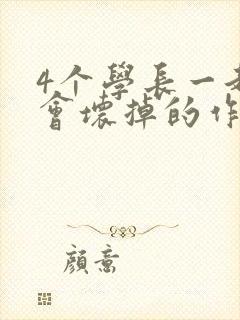 4个學長一
會壞掉的作
顔意